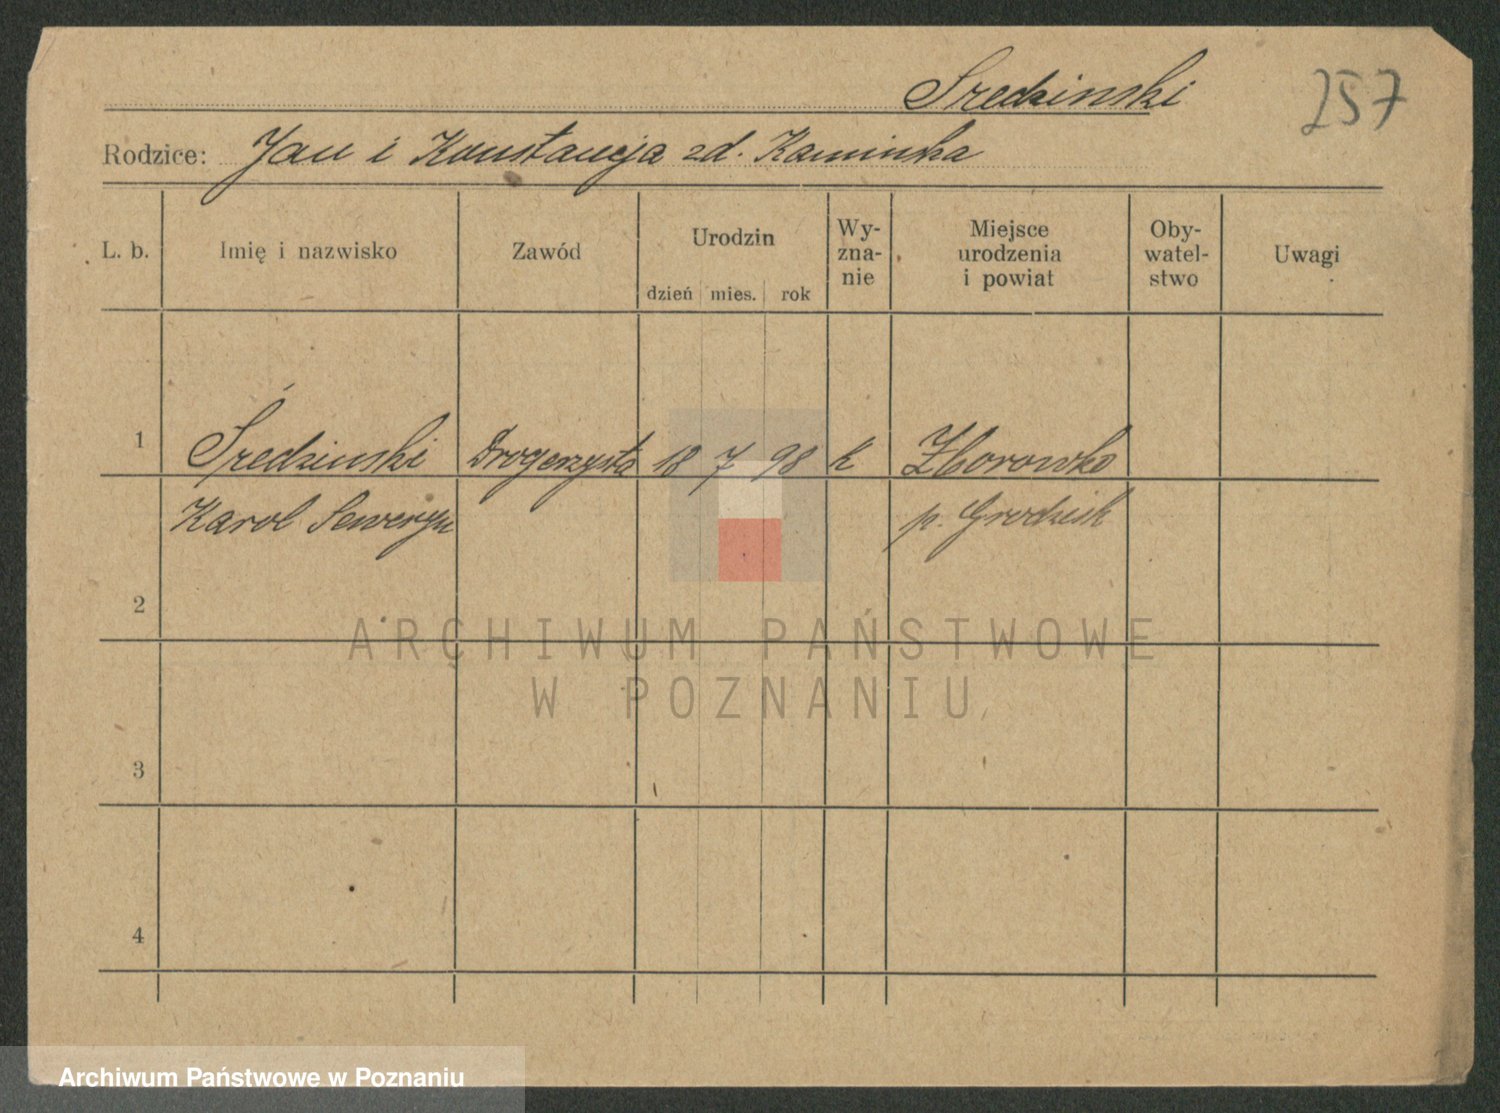 Sredzinski
257
Rodzice: Jan i Konstancja zd. Kaminska
L. b.
Imię i nazwisko
Zawód
Urodzin
dzień mies. rok
Wy-
zna-
nie
Miejsce
urodzenia
i powiat
Oby-
watel-
stwo
Uwagi
1 Średzinski Drogerzysta 18 7 98 k Zborowko
Karol Seweryn p. Grodzisk
2
ARCHIWUM PAŃSTWOWE
W POZNANIU
3
4
Archiwum Państwowe w Poznaniu